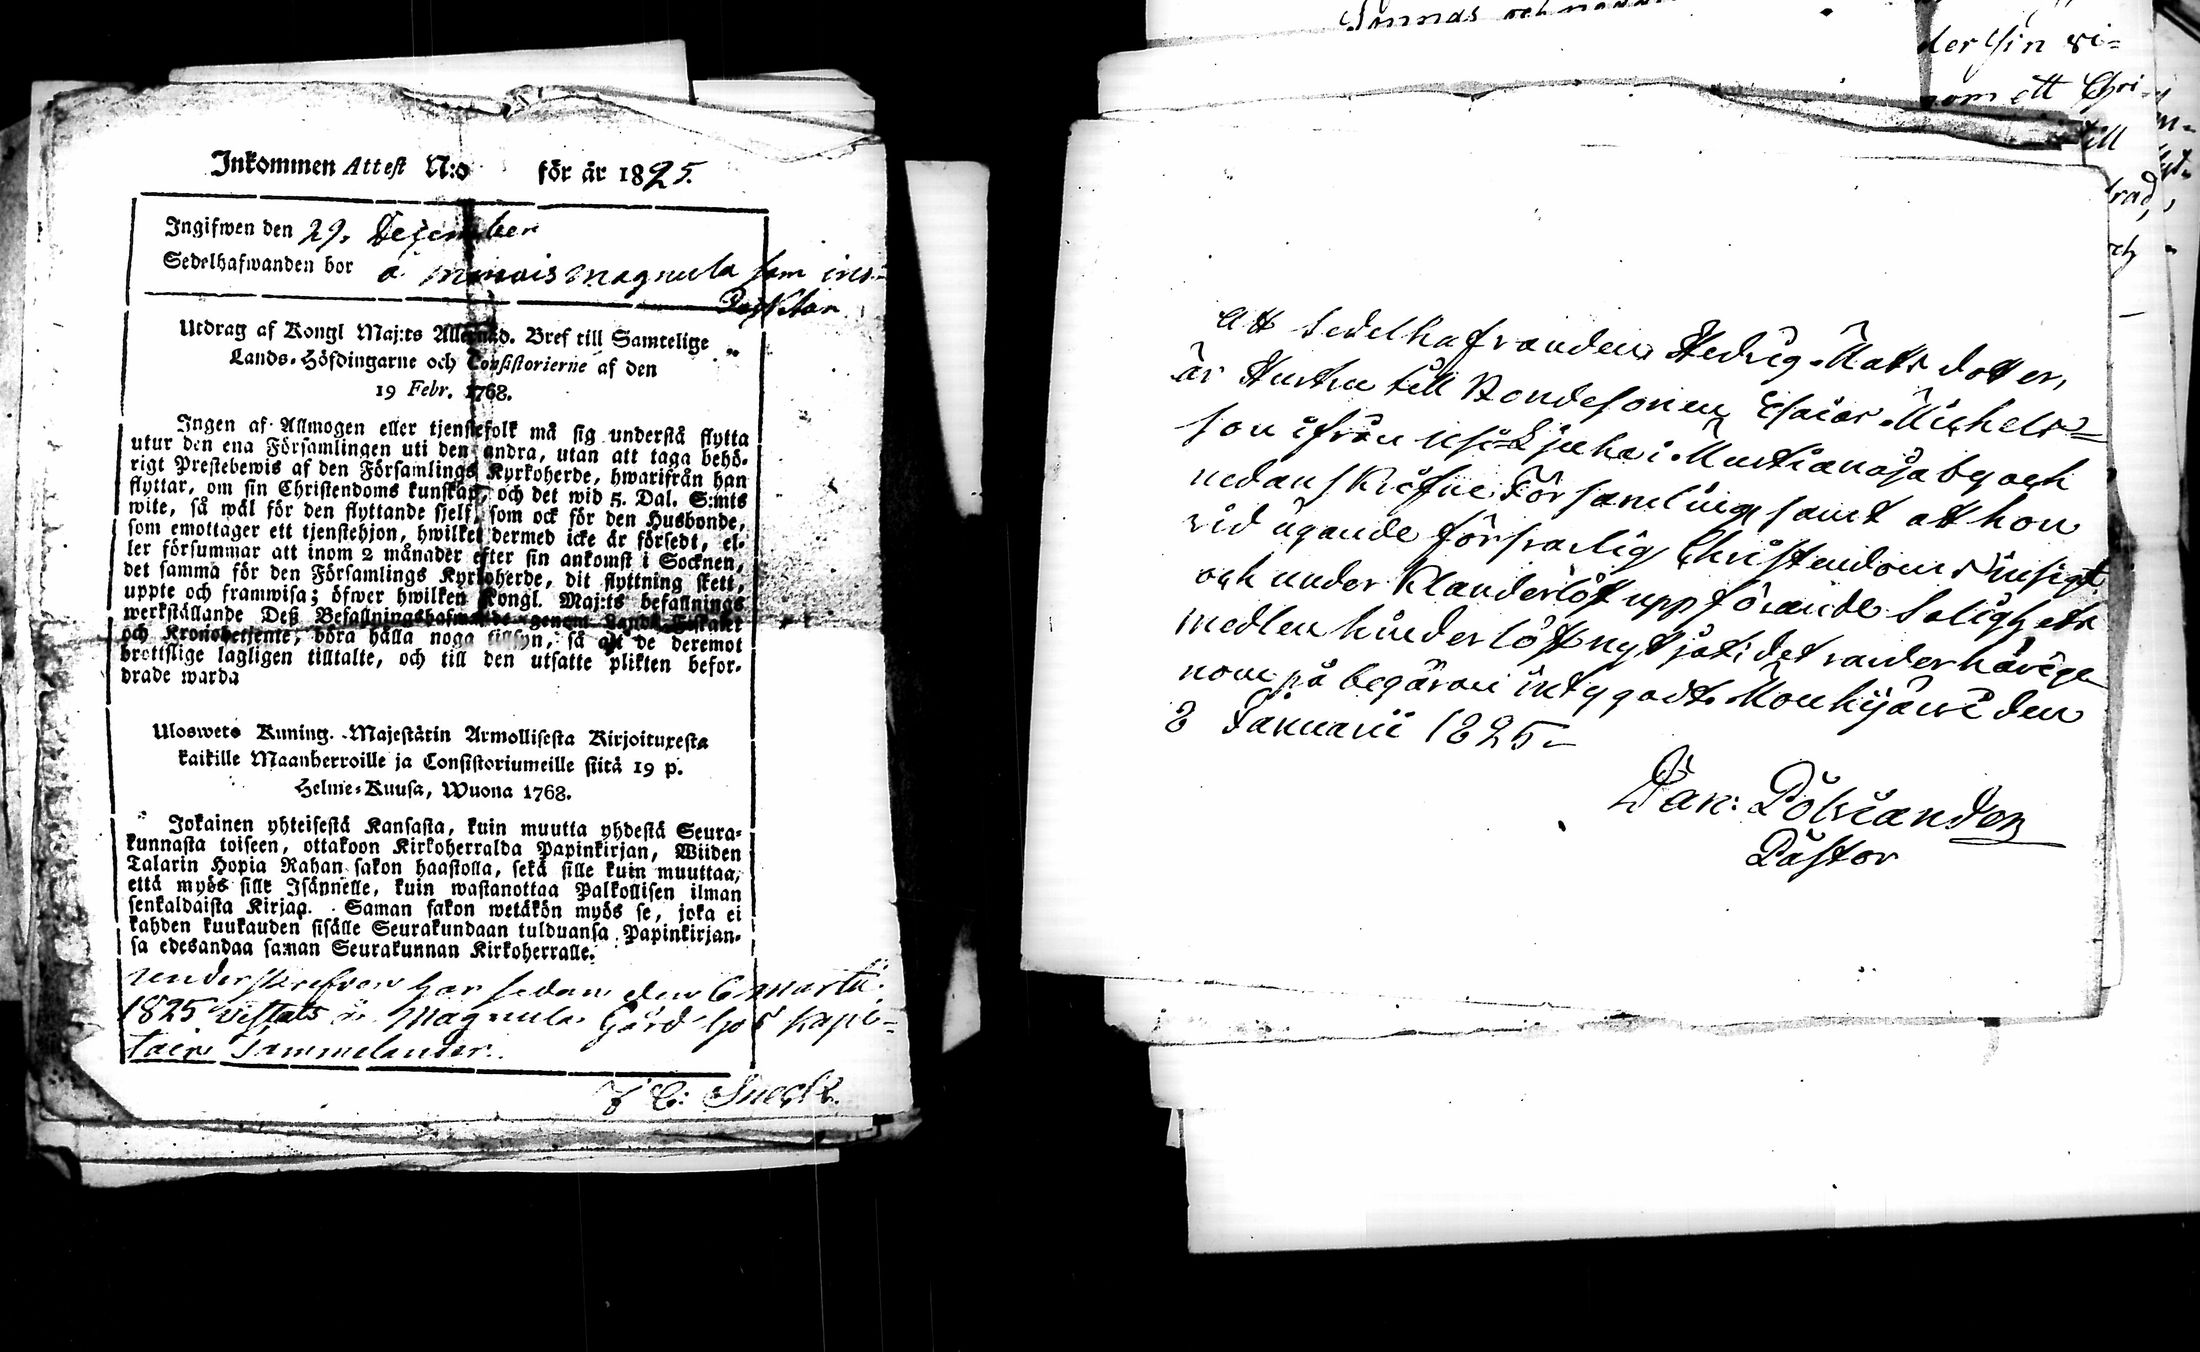 Inkommen Attest N:o för år 1825.
Ingifwen den 29. Dezember
Sedelhafwanden bor å monois Magnula som ins=
pecktor
Utdrag af Kongl Maj:ts Allernåd. Bref till Samtelige
Lands-Höfdingarne och Consistorierne af den
19 Febr. 1768.
Ingen af Allmogen eller tjenstefolk må sig understå flytta
utur den ena Församlingen uti den andra, utan att taga behö-
rigt Prestebewis af den Församlings Kyrkoherde, hwarifrån han
flyttar, om sin Christendoms kunskap, och det wid 5. Dal. S:mts
wite, så wäl för den flyttande sjelf, som ock för den Husbonde,
som emottager ett tjenstehjon, hwilket dermed icke är försedt, el-
ler försummar att inom 2 månader efter sin ankomst i Socknen,
det samma för den Församlings Kyrkoherde, dit flyttning skett,
uppte och framwisa; öfwer hwilken Kongl. Maj:ts befallnings
werkställande Deß Befallningshafwande genom Lands-Fiskaler
och Kronobetjente, böra hålla noga tillsyn, så att de deremot
brottslige lagligen tilltalte, och till den utsatte plikten befor-
drade warda
Ulosweto Kuning. Majestätin Armollisesta Kirjoituxesta
kaikille Maanherroille ja Consistoriumeille siitä 19 p.
Helme-Kuusa, Wuona 1768.
Jokainen yhteisestä Kansasta, kuin muutta yhdestä Seura-
kunnasta toiseen, ottakoon Kirkoherralda Papinkirjan, Wiiden
Talarin Hopia Rahan sakon haastolla, sekä sille kuin muuttaa,
että myös sille Isännelle, kuin wastanottaa Palkollisen ilman
senkaldaista Kirjaa. Saman sakon wetäkön myös se, joka ei
kahden kuukauden sisälle Seurakundaan tulduansa Papinkirjan-
sa edesandaa saman Seurakunnan Kirkoherralle.
underskrefven har sedan den 6 Martii
1825 vistats å Magnula Gård hos Kapi=
tain Tammelander.
Sneck.
Att Sedelhafvanden Hedvig Matsdotter,
är Hustru till Bondesonen Esaias Michels=
son ifrån i Murtianoja by och
nedanskrefne Församling samt att hon
vid ägande försvarlig Christendoms insigt
och under klanderlöst uppförande Salighets
medlen hinderlöst nyttjat; det varder härige
nom på begäran intygadt. Mouhijärvi den
8 Januarii 1825.
Dan: Polviander
Pastor
der sin vi=
som ett Chri
till